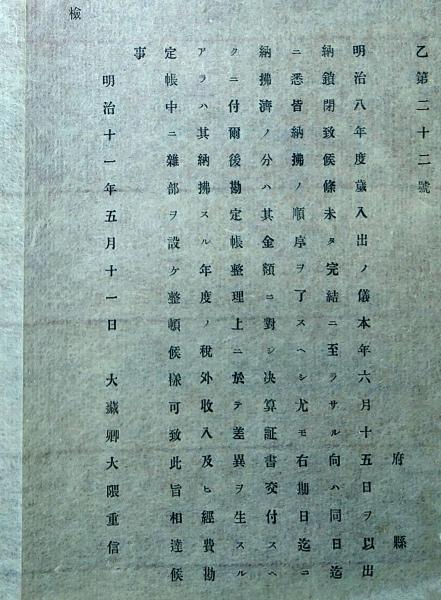 乙第二十二號
府縣
明治八年度歲入出ノ儀本年六月十五日ヲ以出
納鎖閉致候條未タ完結ニ至ラサル向ハ同日迄
ニ悉皆納拂ノ順序ヲ了スヘシ尤モ右期日迄ニ
納拂濟ノ分ハ其金額ニ對シ决算証書交付スヘ
クニ付爾後勘定帳整理上ニ於テ差異ヲ生スル
アラハ其納拂スル年度ノ稅外收入及ヒ經費勘
定帳中ニ雜部ヲ設ケ整頓候樣可致此旨相達候
事
明治十一年五月十一日 大藏卿大隈重信
檢